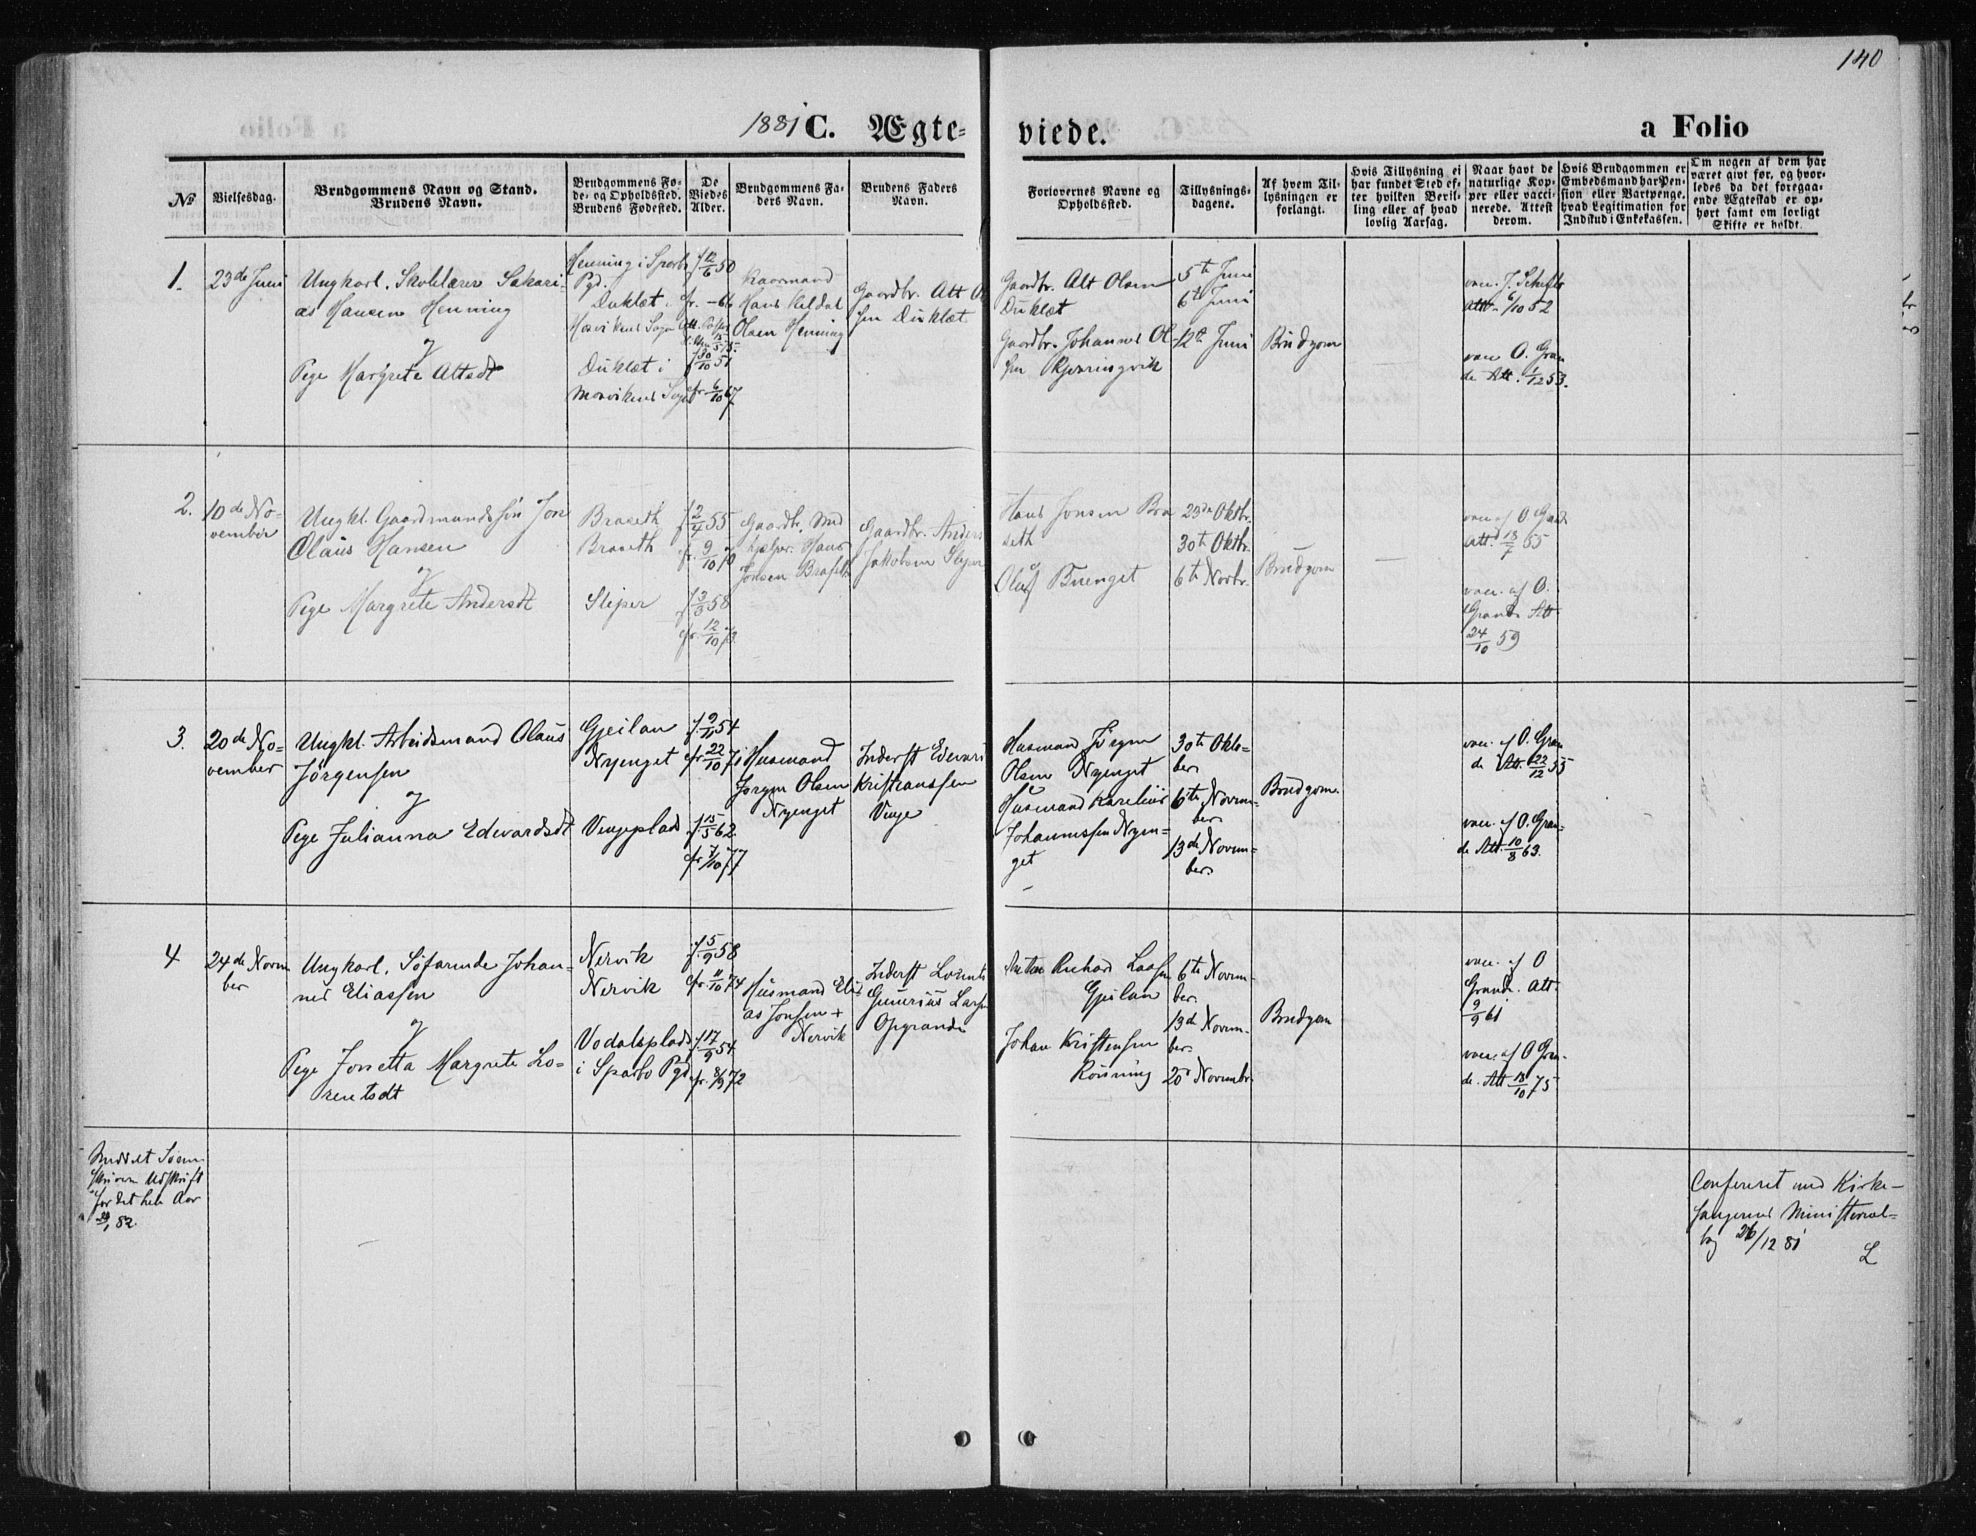 140
1881 C. Ægte-
viede.
a Folio
No
Vielsesdag.
Brudgommens Navn og Stand.
Brudens Navn.
Brudgommens Fø-
de- og Opholdssted.
Brudens Fødested.
De
Viedes
Alder.
Brudgommens Fa-
ders Navn.
Brudens Faders
Navn.
Forlovernes Navne og
Opholdssted.
Tillysnings-
dagene.
Af hvem Til-
lysningen er
forlangt.
Hvis Tillysning ei
har fundet Sted ef-
ter hvilken Bevil-
ling eller af hvad
lovlig Aarsag.
Naar havt de
naturlige Kop-
per eller vacci-
nerede. Attest
derom.
Hvis Brudgommen er
Embedsmand har Pen-
sion eller Vartpenge,
hvad Legitimation for
Indskud i Enkekassen.
Om nogen af dem har
været givt før, og hvor-
ledes da det foregaa-
ende Ægteskab er op-
hørt samt om lovligt
Skifte er holdt.
1.
23de Juni
Ungkarl. Skolelærer Sakari-
as Hansen Henning
og
Pige Margrete Altsdt
Henning i Sparbo
Pgd.
Duklæt i
Mosvikens Sogn
Duklæt i
Mosvikens Sogn
f. 12/6 50
cfr. -66
f. 30/10 51
cfr. 6/10 67
Kaarmand
Hans Keldal
Olsen Henning
Gaardbr. Alt Ol
sen Duklæt
Gaardbr. Alt Olsen
Duklæt
Gaardbr. Johannes Ol-
sen Kjerringvik
5te Juni
6te Juni
12te Juni
Brudgom
vacc. J. Schefte
Att. 6/10 52
vacc. O. Gran
de Att. 1/12 53.
2.
10de No-
vember
Ungkl. Gaardmandssøn Jon
Olaus Hansen
og
Pige Margrete Andersdt
Braseth
Braseth
Sliper
f. 2/4 55
cfr. 9/10 70
f. 3/3 58
cfr. 12/10 73
Gaardbr. Med
hjælper. Hans
Jonsen Braseth
Gaardbr. Anders
Jakobsen Sliper
Hans Jonsen Bra
seth
Oluf Buenget
23de Oktbr.
30te Oktbr.
6te Novbr.
Brudgom
—
vacc. af O. Grande
Att. 13/7 65
vacc. af O.
Grande Att
24/10 59
3.
20de No-
vember
Ungkl. Arbeidsmand Olaus
Jørgensen
og
Pige Julianna Edevardsdt
Gjeilan
Nyenget
Vingeplads
f. 9/11 54
cfr. 22/10 71
f. 15/5 62
cfr. 7/10 77
Husmand
Jørgen Olsen
Nyenget
Inderst Edevart
Kristianssen
Vinge
Husmand Jørgen
Olsen Nyenget
Husmand Karelius
Johannessen Nyen-
get
30te Okto-
ber
6te Novem-
ber
13de Novem-
ber.
Brudgom.
vacc. af O. Gran
de Att. 22/12 55
vacc. af O. Gran-
de Att. 10/8 63.
4
24de Novem
ber
Ungkarl. Søfarende Johan-
nes Eliassen
og
Pige Jonetta Margrete Lo-
rentsdt
Nervik
Nervik
Vodalsplads
i Sparbo Pgd
f. 5/9 58
cfr. 11/10 74
f. 17/9 54
cfr. 8/9 72
Husmand Eli-
as Jonsen +
Nervik
Inderst Lorents
Gunerius Larsen
Opgrande
Anton Richard Laasen
Gjeilan
Johan Kristensen
Rosning
6te Novem-
ber.
13de Novem-
ber.
20de Novembr.
Brudgom
vacc. af O
Grande. Att.
9/9 61
vacc. af O Gran-
de. Att 13/10 75
Meddelt Soren-
skriveren Udskrift
for det hele Aar
82.
Confereret med Kirke-
sangerens Ministerial-
bog 26/12 81
L